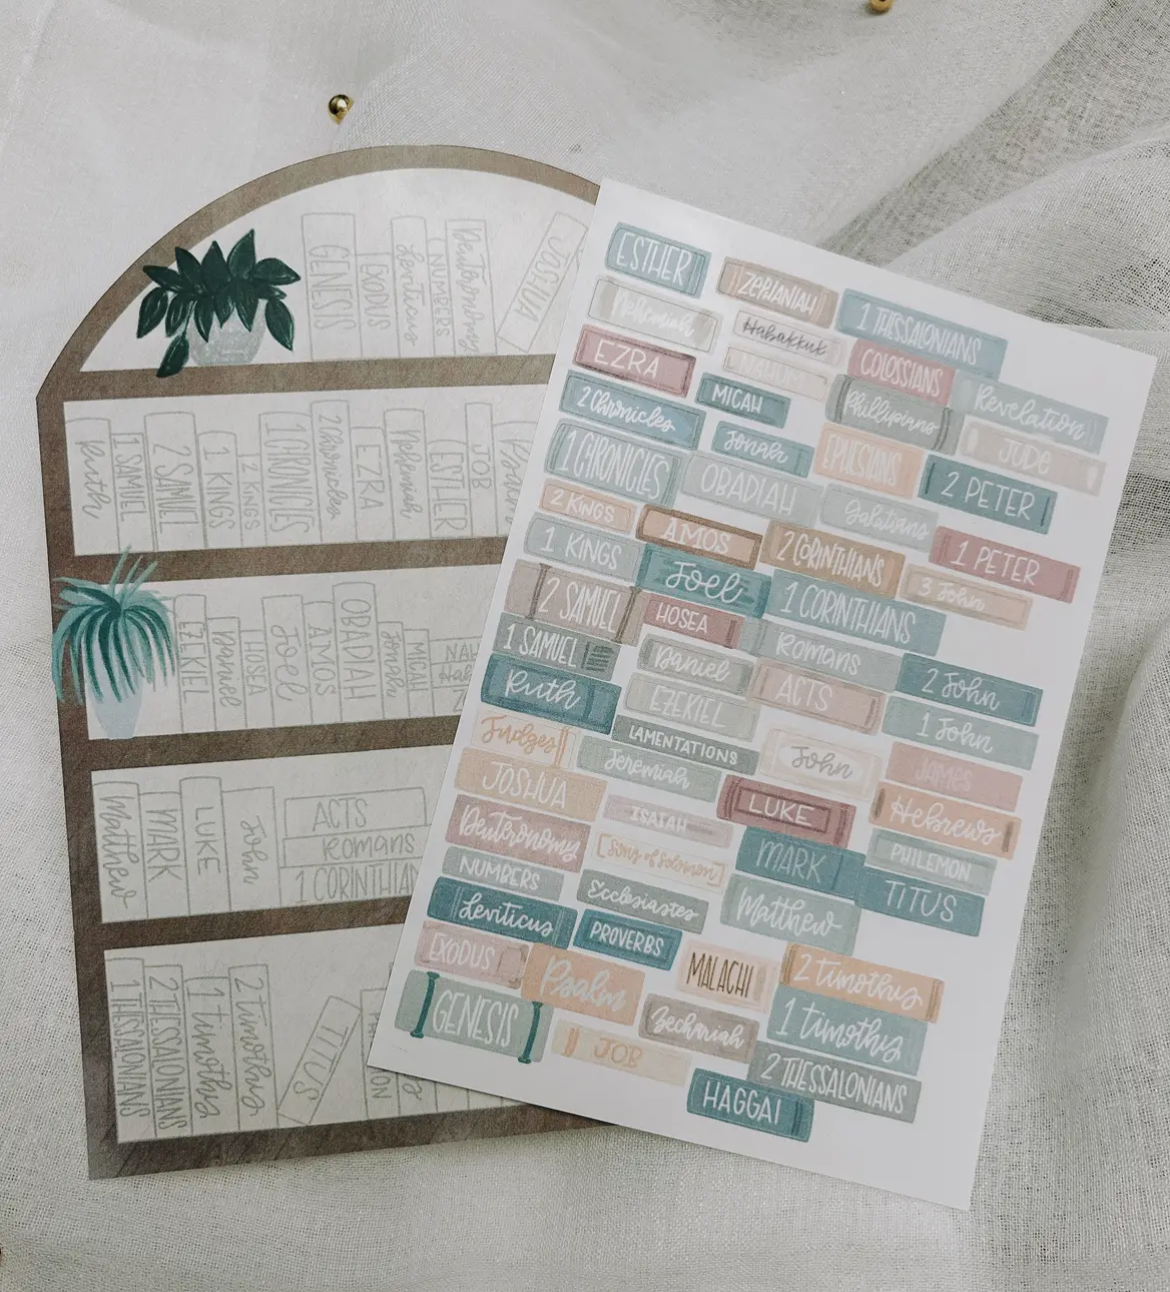 GENESIS
EXODUS
Leviticus
NUMBERS
Deuteronomy
JOSHUA
Ruth
1 SAMUEL
2 SAMUEL
1 KINGS
2 KINGS
1 CHRONICLES
2 Chronicles
EZRA
Nehemiah
ESTHER
JOB
EZEKIEL
Daniel
HOSEA
Joel
AMOS
OBADIAH
Jonah
MICAH
NAHU
Hab
Z
Matthew
MARK
LUKE
John
ACTS
Romans
1 CORINTHIAN
1 THESSALONIANS
2 THESSALONIANS
1 timothy
2 timothy
TITUS
ESTHER
Nehemiah
EZRA
2 Chronicles
1 CHRONICLES
2 KINGS
1 KINGS
2 SAMUEL
1 SAMUEL
Ruth
Judges
JOSHUA
Deuteronomy
NUMBERS
Leviticus
EXODUS
GENESIS
ZEPHANIAH
Habakkuk
NAHUM
MICAH
Jonah
OBADIAH
AMOS
Joel
HOSEA
Daniel
EZEKIEL
LAMENTATIONS
Jeremiah
ISAIAH
[Song of Solomon]
Ecclesiastes
PROVERBS
Psalm
JOB
1 THESSALONIANS
COLOSSIANS
Phillipians
EPHESIANS
Galatians
2 CORINTHIANS
1 CORINTHIANS
Romans
ACTS
John
LUKE
MARK
Matthew
MALACHI
Zechariah
HAGGAI
Revelation
JUDE
2 PETER
1 PETER
3 John
2 John
1 John
JAMES
Hebrews
PHILEMON
TITUS
2 timothy
1 timothy
2 THESSALONIANS